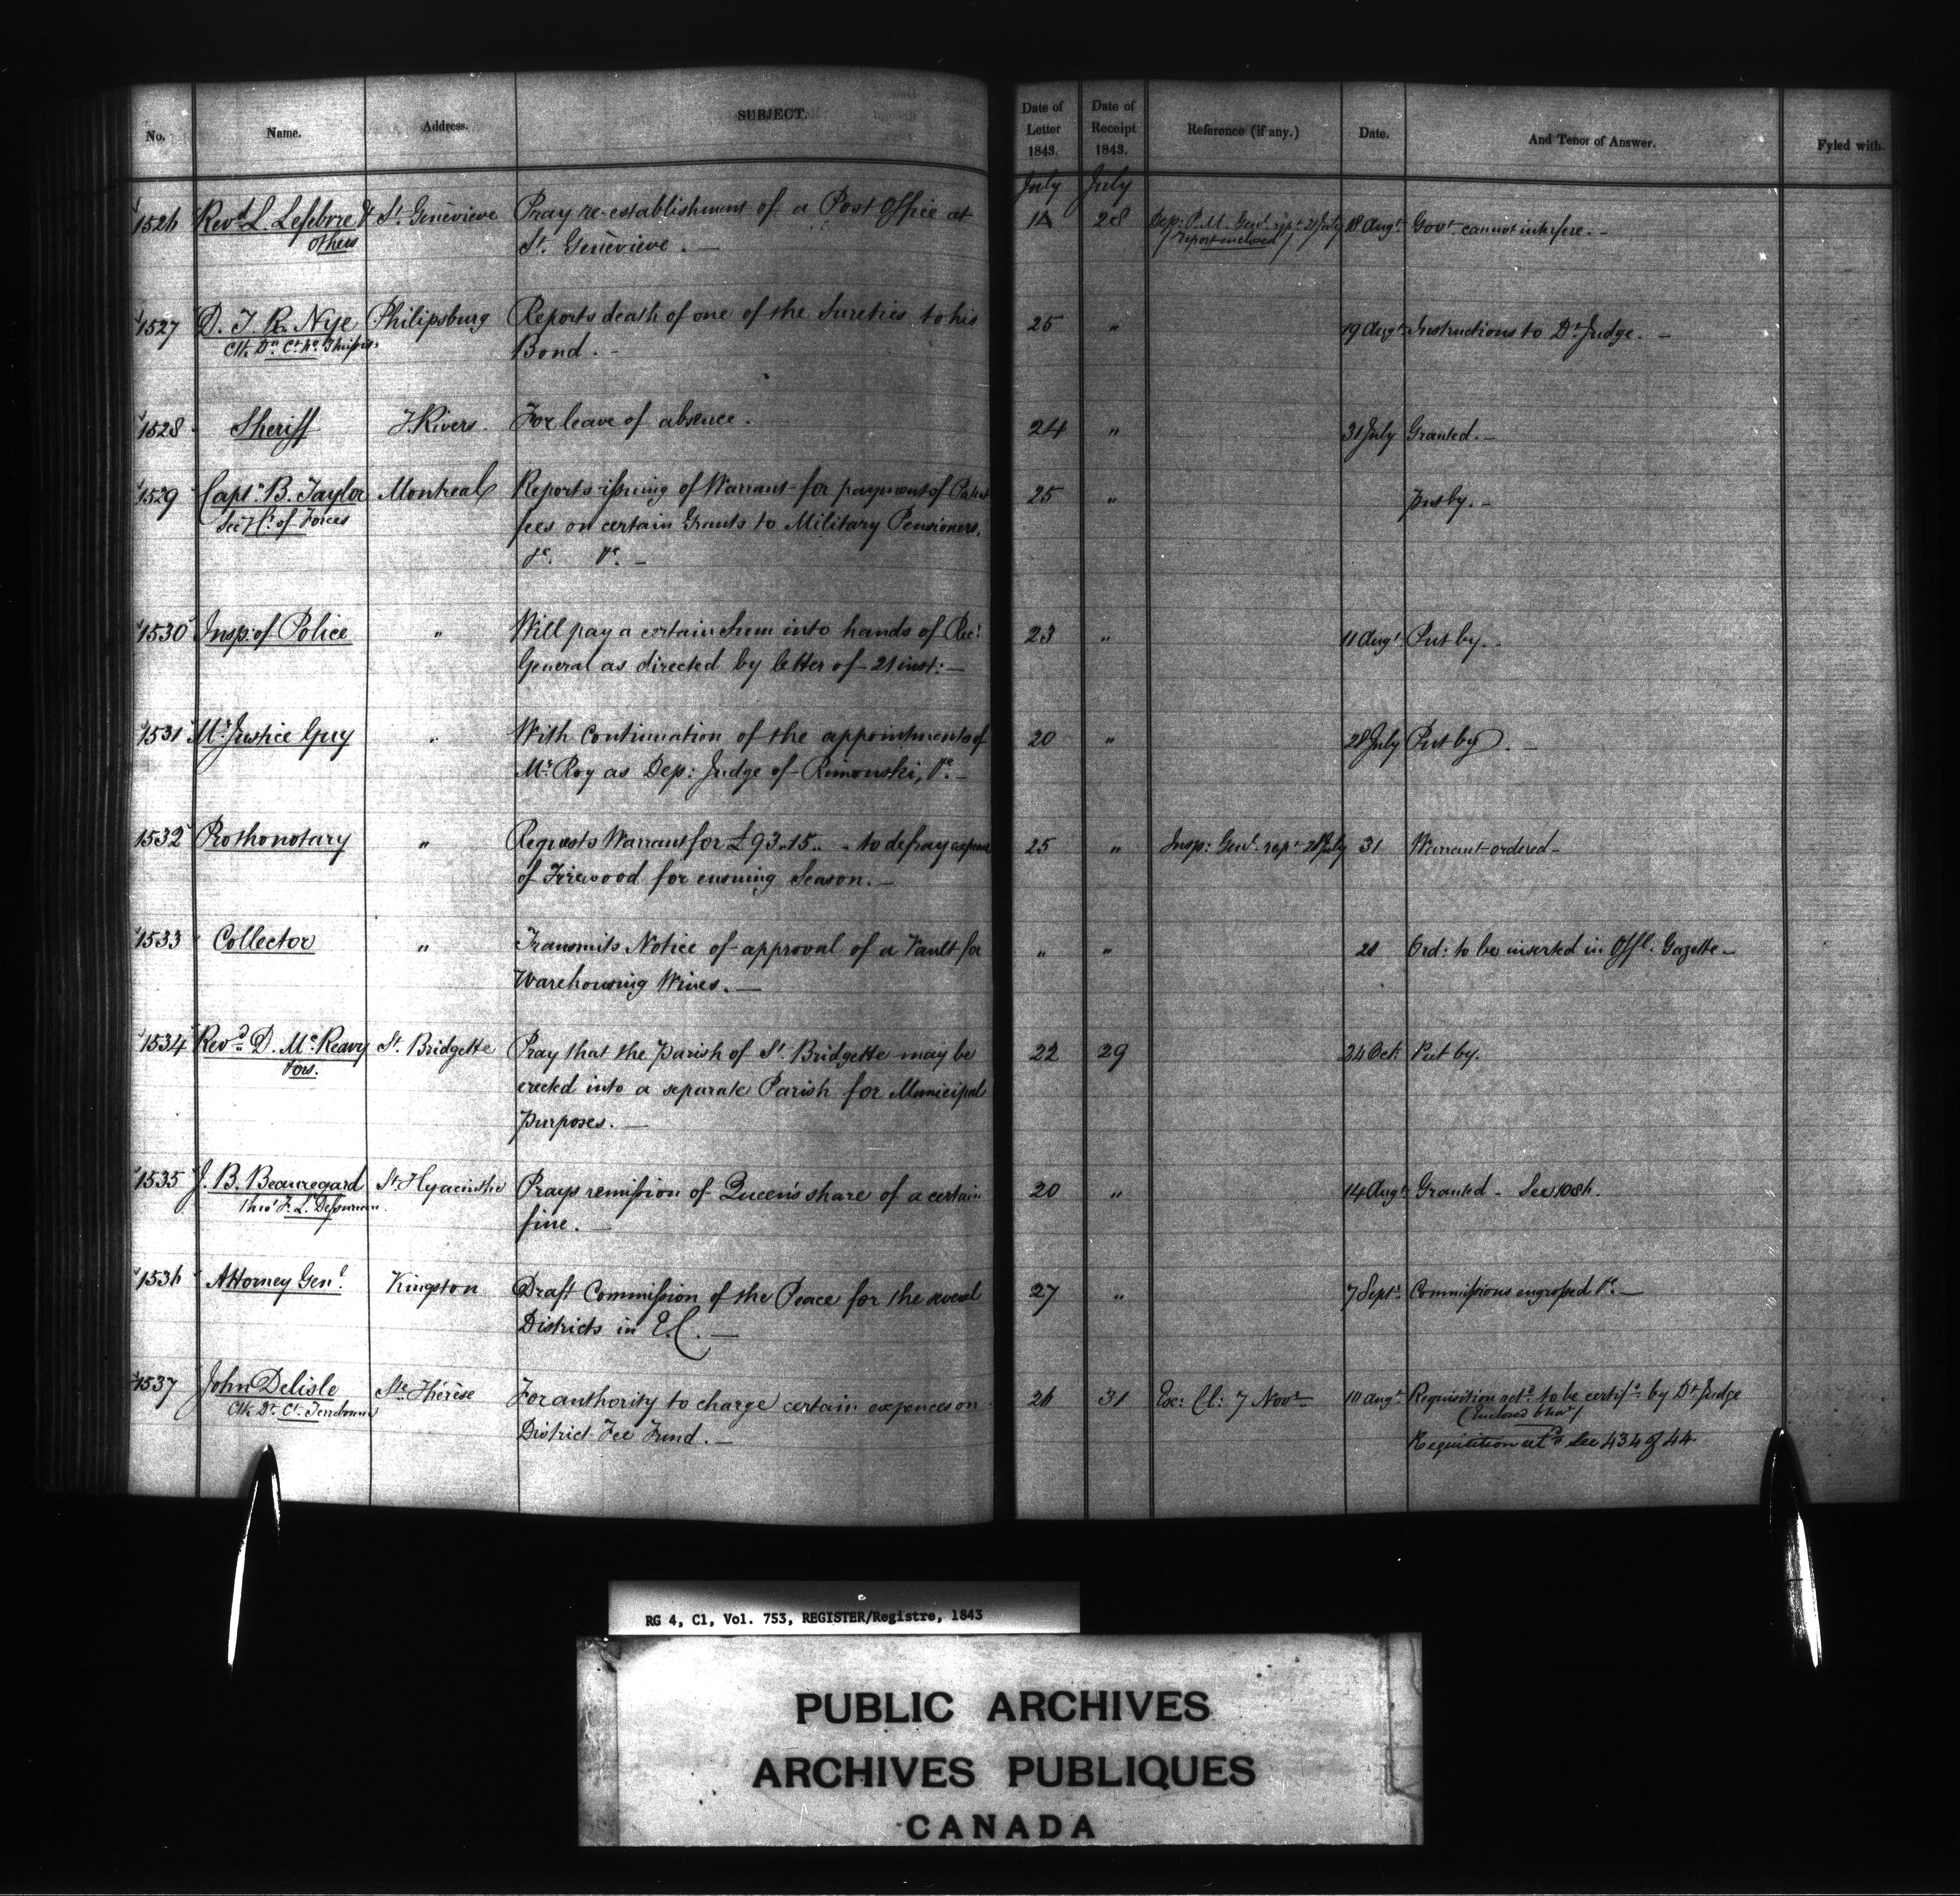 No. Name. Address. SUBJECT. Date of Letter 1843. Date of Receipt 1843. Reference (if any.) Date. And Tenor of Answer. Fyled with.
July July
1526 Revd. L. Lefebvre & St. Genèvieve Pray re-establishment of a Post Office at 28 Dep: P.M. Genl. rept. 31 July 18 Augt. Govt. cannot interfere. —
others St. Genèvieve. — (report enclosed)
1527 D. T. R. Nye Philipsburg Reports death of one of the Sureties to his 25 " 19 Augt. Instructions to Dt. Judge. —
Bond. -
1528 Sheriff T. Rivers. For leave of absence. 24 " 31 July Granted. —
1529 Capt. B. Taylor Montreal Reports issuing of Warrant for payment of Patent 25 " put by. -
Secy. of Forces fees on certain Grants to Military Pensioners,
&c. &c. —
1530 Insp: of Police " Will pay a certain Sum into hands of Recr. 23 " 11 Augt. Put by. -
General as directed by letter of 21 inst: —
1531 Mr. Justice Guy " With continuation of the appointments of 20 " 28 July Put by. —
Mr. Roy as Dep: Judge of Rimouski, &c. —
1532 Prothonotary " Requests Warrant for £93..15.. - to defray expense 25 " Insp: Genl. rept. 28 July 31 Warrant ordered —
of Firewood for ensuing Season. —
1533 Collector " Transmits Notice of approval of a Vault for " " Ord: to be inserted in Offl. Gazette —
Warehousing Wines. —
1534 Revd. D. McReavy St. Bridgette Pray that the parish of St. Bridgette may be 22 29 24 Oct. Put by.
&ors. erected into a separate Parish for Municipal
Purposes. —
1535 J. B. Beauregard St. Hyacinthe Prays remission of Queen's share of a certain 20 " 14 Augt. Granted - See
thro' F. L. fine. —
1536 Attorney Genl. Kingston Draft Commission of the Peace for the several 27 " 7 Sept. Commissions engrossed &c. —
Districts in E.C. —
1537 John Delisle Ste. Thérèse For authority to charge certain expences on 26 31 Exc: Cl: 7 Novr. 10 Augt. Requisition retd. to be certifd. by Dt. Judge
Clk. Dt. Ct. Terrebonne District Fee Fund. — (Enclosed
Requisition retd. See 434 of 44.
RG 4, C1, Vol. 753, REGISTER/Registre, 1843
PUBLIC ARCHIVES
ARCHIVES PUBLIQUES
CANADA